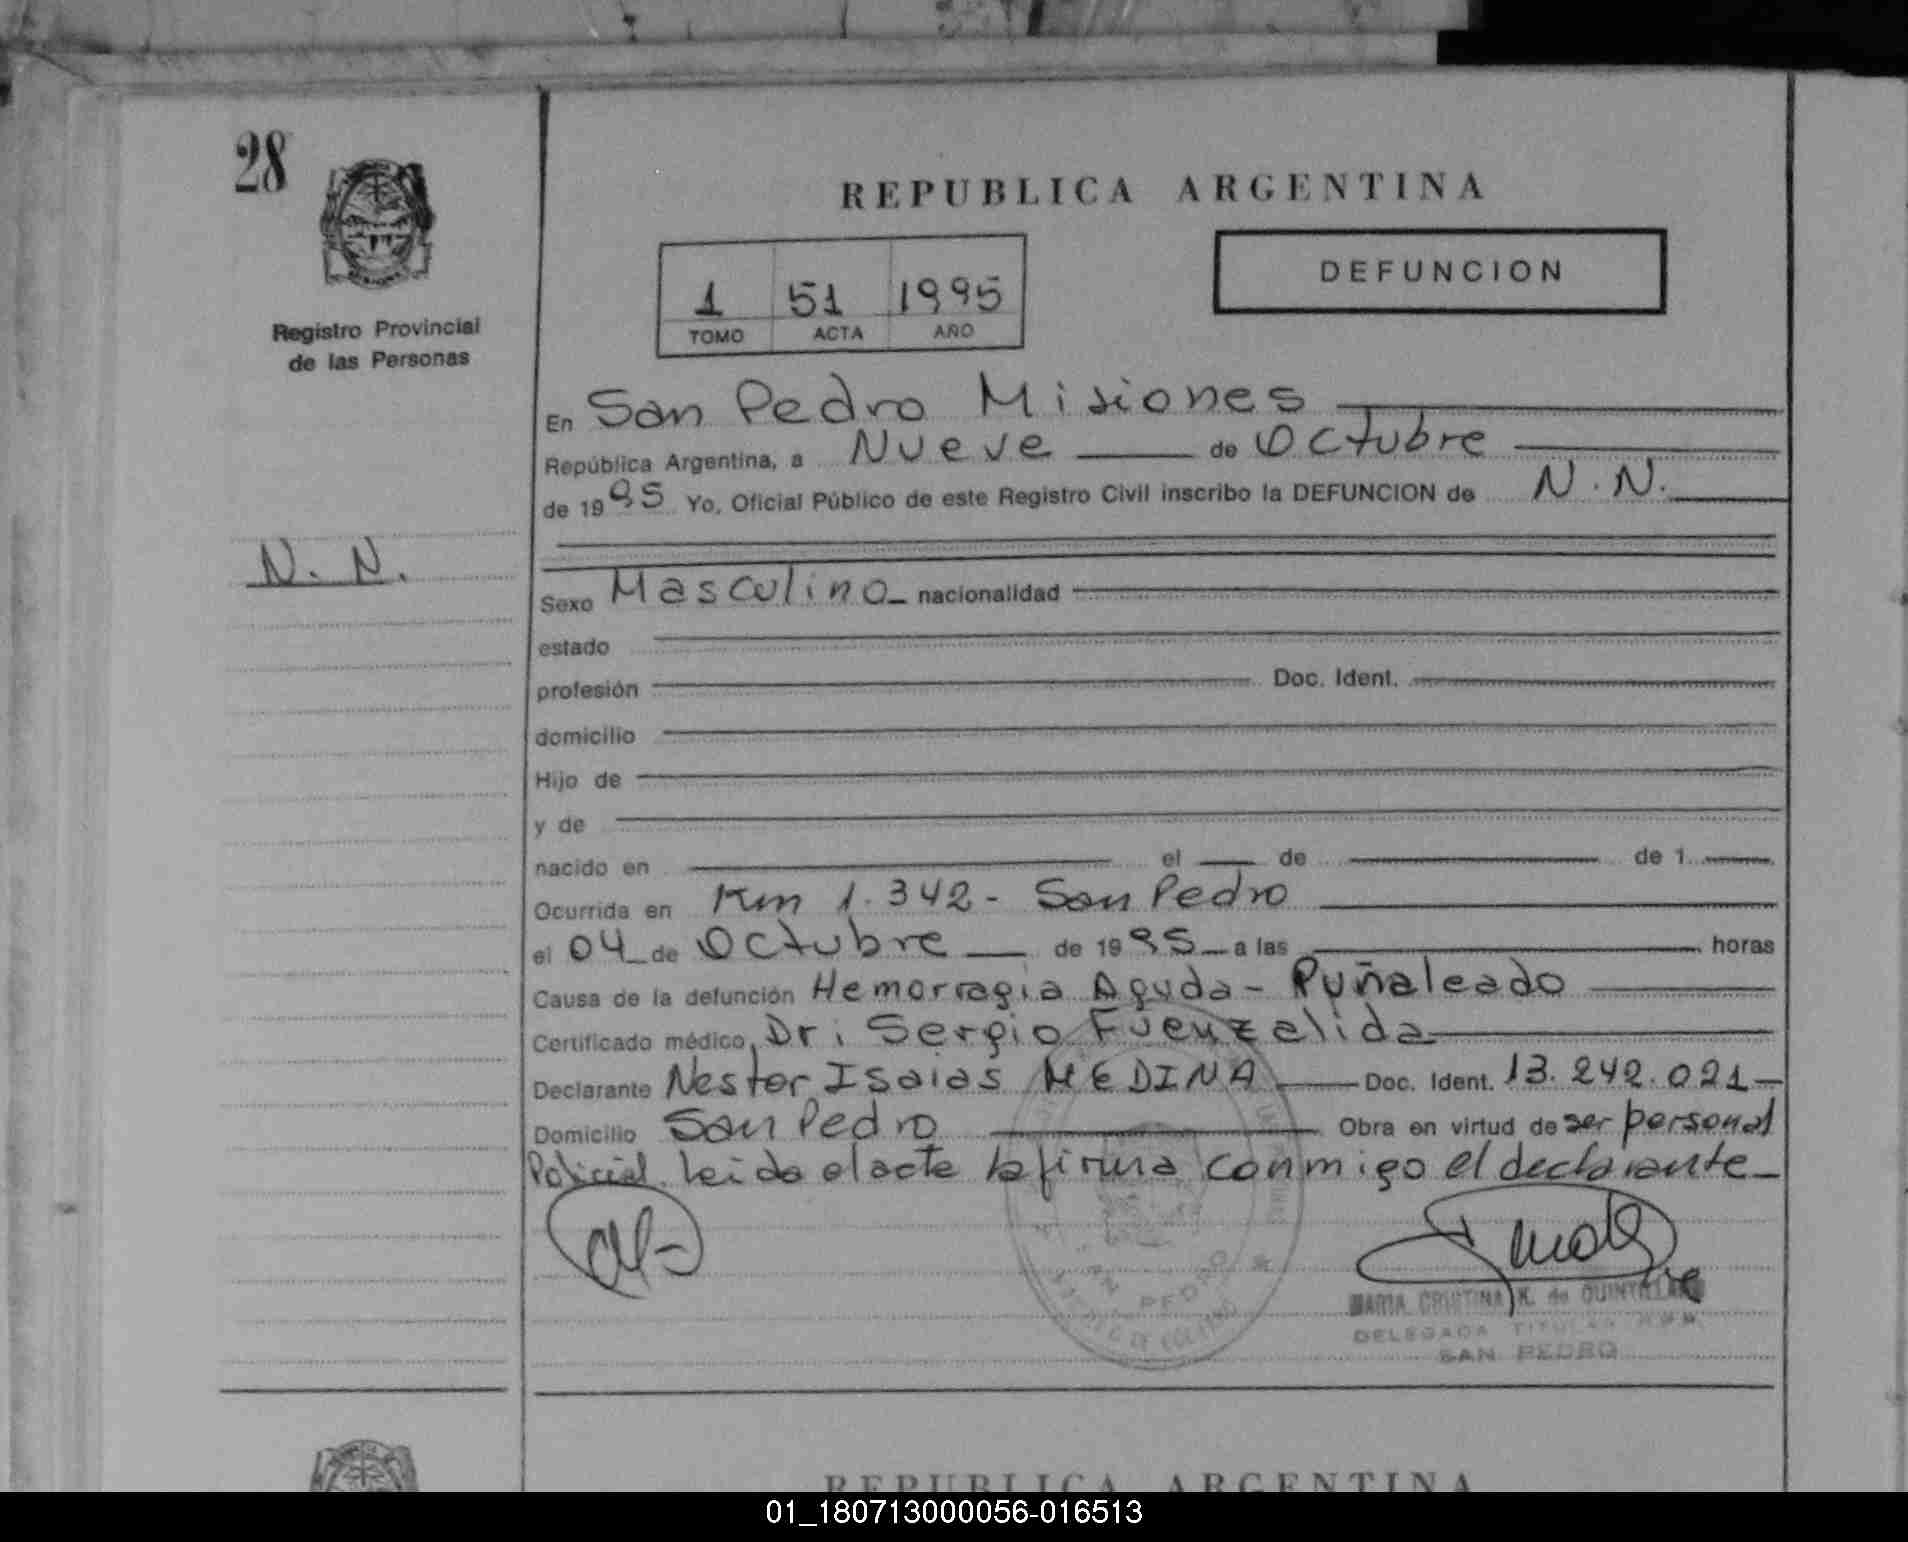 28
REPUBLICA ARGENTINA
DEFUNCION
1 51 1995
TOMO ACTA AÑO
Registro Provincial
de las Personas
En San Pedro Misiones
República Argentina, a Nueve de Octubre
de 1995 Yo, Oficial Público de este Registro Civil inscribo la DEFUNCION de N.N.
N. N.
Sexo Masculino nacionalidad
estado
profesión Doc. Ident.
domicilio
Hijo de
y de
nacido en el de de 1
Ocurrida en Km 1.342 - San Pedro
el 04 de Octubre de 1995 a las horas
Causa de la defunción Hemorragia Aguda - Puñaleado
Certificado médico, Dr: Sergio Fuenzalida
Declarante Nestor Isaias MEDINA Doc. Ident. 13.242.021
Domicilio San Pedro Obra en virtud de ser personal
Policial. Leida el acta la firma conmigo el declarante
SAN PEDRO
MARIA CRISTINA K. de
DELEGADA TITULAR
SAN PEDRO
REPUBLICA ARGENTINA
01_180713000056-016513